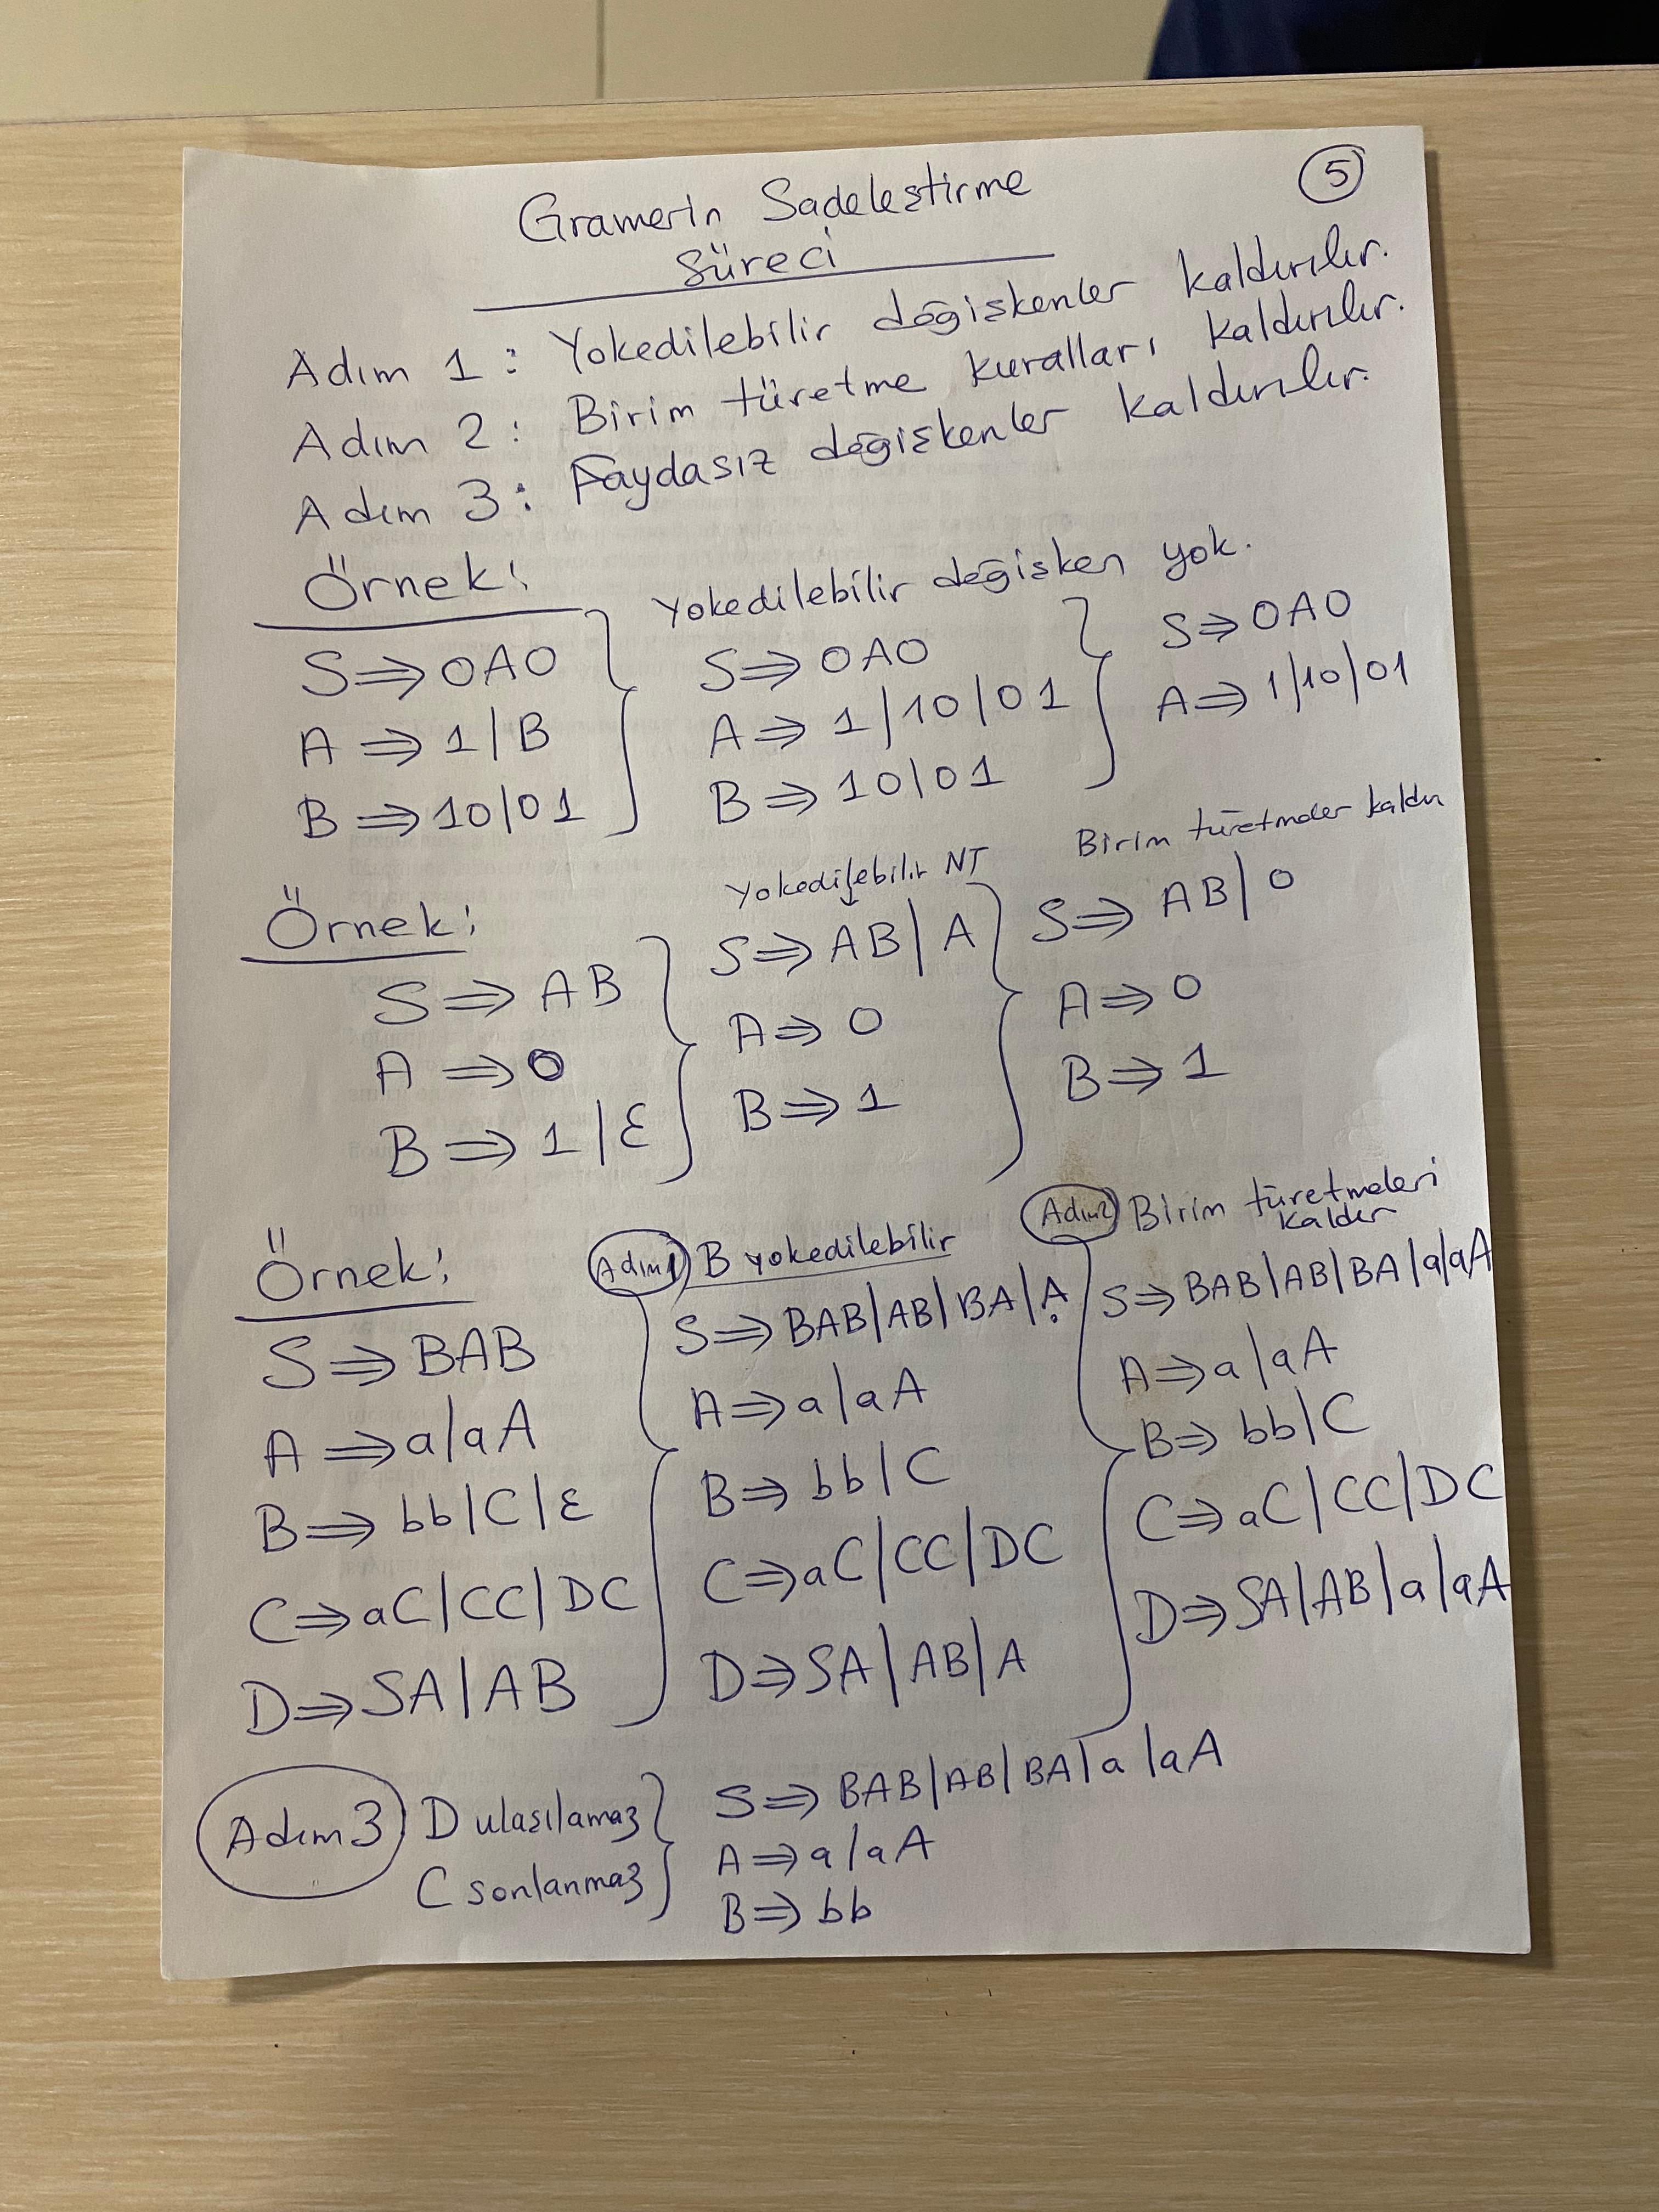 5
Gramerin Sadeleştirme
Süreci
Adım 1 : Yokedilebilir değişkenler kaldırılır.
Adım 2 : Birim türetme kuralları kaldırılır.
Adım 3 : Faydasız değişkenler kaldırılır.
Örnek:
Yokedilebilir değişken yok.
S ⇒ 0A0
A ⇒ 1 | B
B ⇒ 10 | 01
S ⇒ 0A0
A ⇒ 1 | 10 | 01
B ⇒ 10 | 01
S ⇒ 0A0
A ⇒ 1 | 10 | 01
Örnek:
S ⇒ AB
A ⇒ 0
B ⇒ 1 | ε
Yokedilebilir NT
S ⇒ AB | A
A ⇒ 0
B ⇒ 1
Birim türetmeler kaldır
S ⇒ AB | 0
A ⇒ 0
B ⇒ 1
Örnek:
S ⇒ BAB
A ⇒ a | aA
B ⇒ bb | C | ε
C ⇒ aC | CC | DC
D ⇒ SA | AB
Adım 1 B yokedilebilir
S ⇒ BAB | AB | BA | A
A ⇒ a | aA
B ⇒ bb | C
C ⇒ aC | CC | DC
D ⇒ SA | AB | A
Adım 2 Birim türetmeleri
kaldır
S ⇒ BAB | AB | BA | a | aA
A ⇒ a | aA
B ⇒ bb | C
C ⇒ aC | CC | DC
D ⇒ SA | AB | a | aA
Adım 3 D ulaşılamaz
C sonlanmaz
S ⇒ BAB | AB | BA | a | aA
A ⇒ a | aA
B ⇒ bb